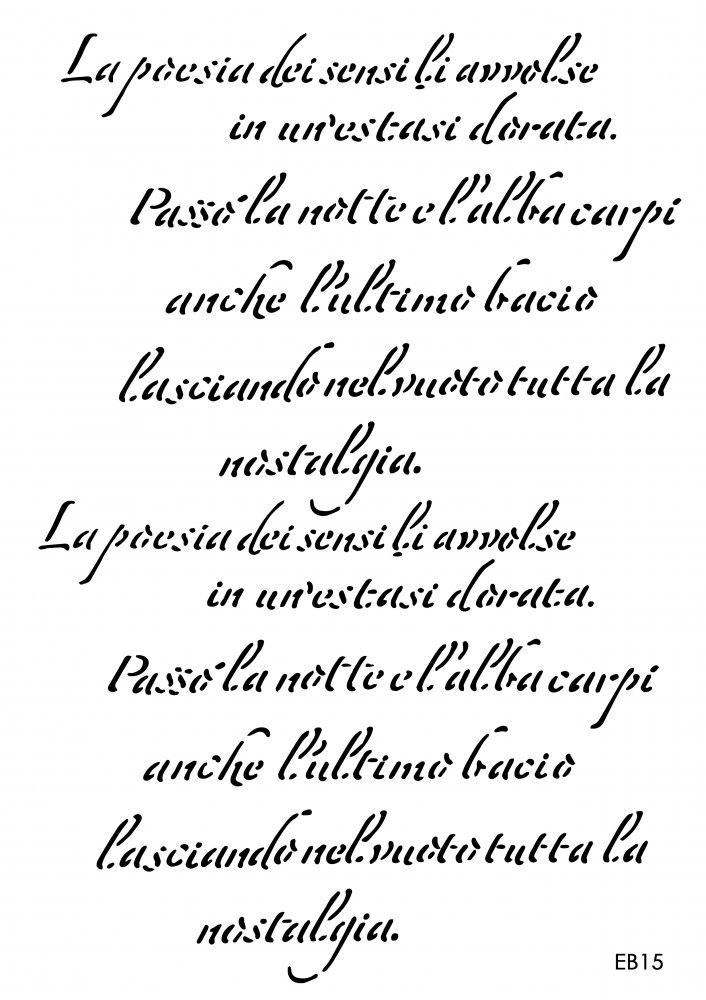 La poesia dei sensi li avvolse
in un'estasi dorata.
Passò la notte e l'alba carpi
anche l'ultimo bacio
lasciando nel vuoto tutta la
nostalgia.
La poesia dei sensi li avvolse
in un'estasi dorata.
Passò la notte e l'alba carpi
anche l'ultimo bacio
lasciando nel vuoto tutta la
nostalgia.
EB15